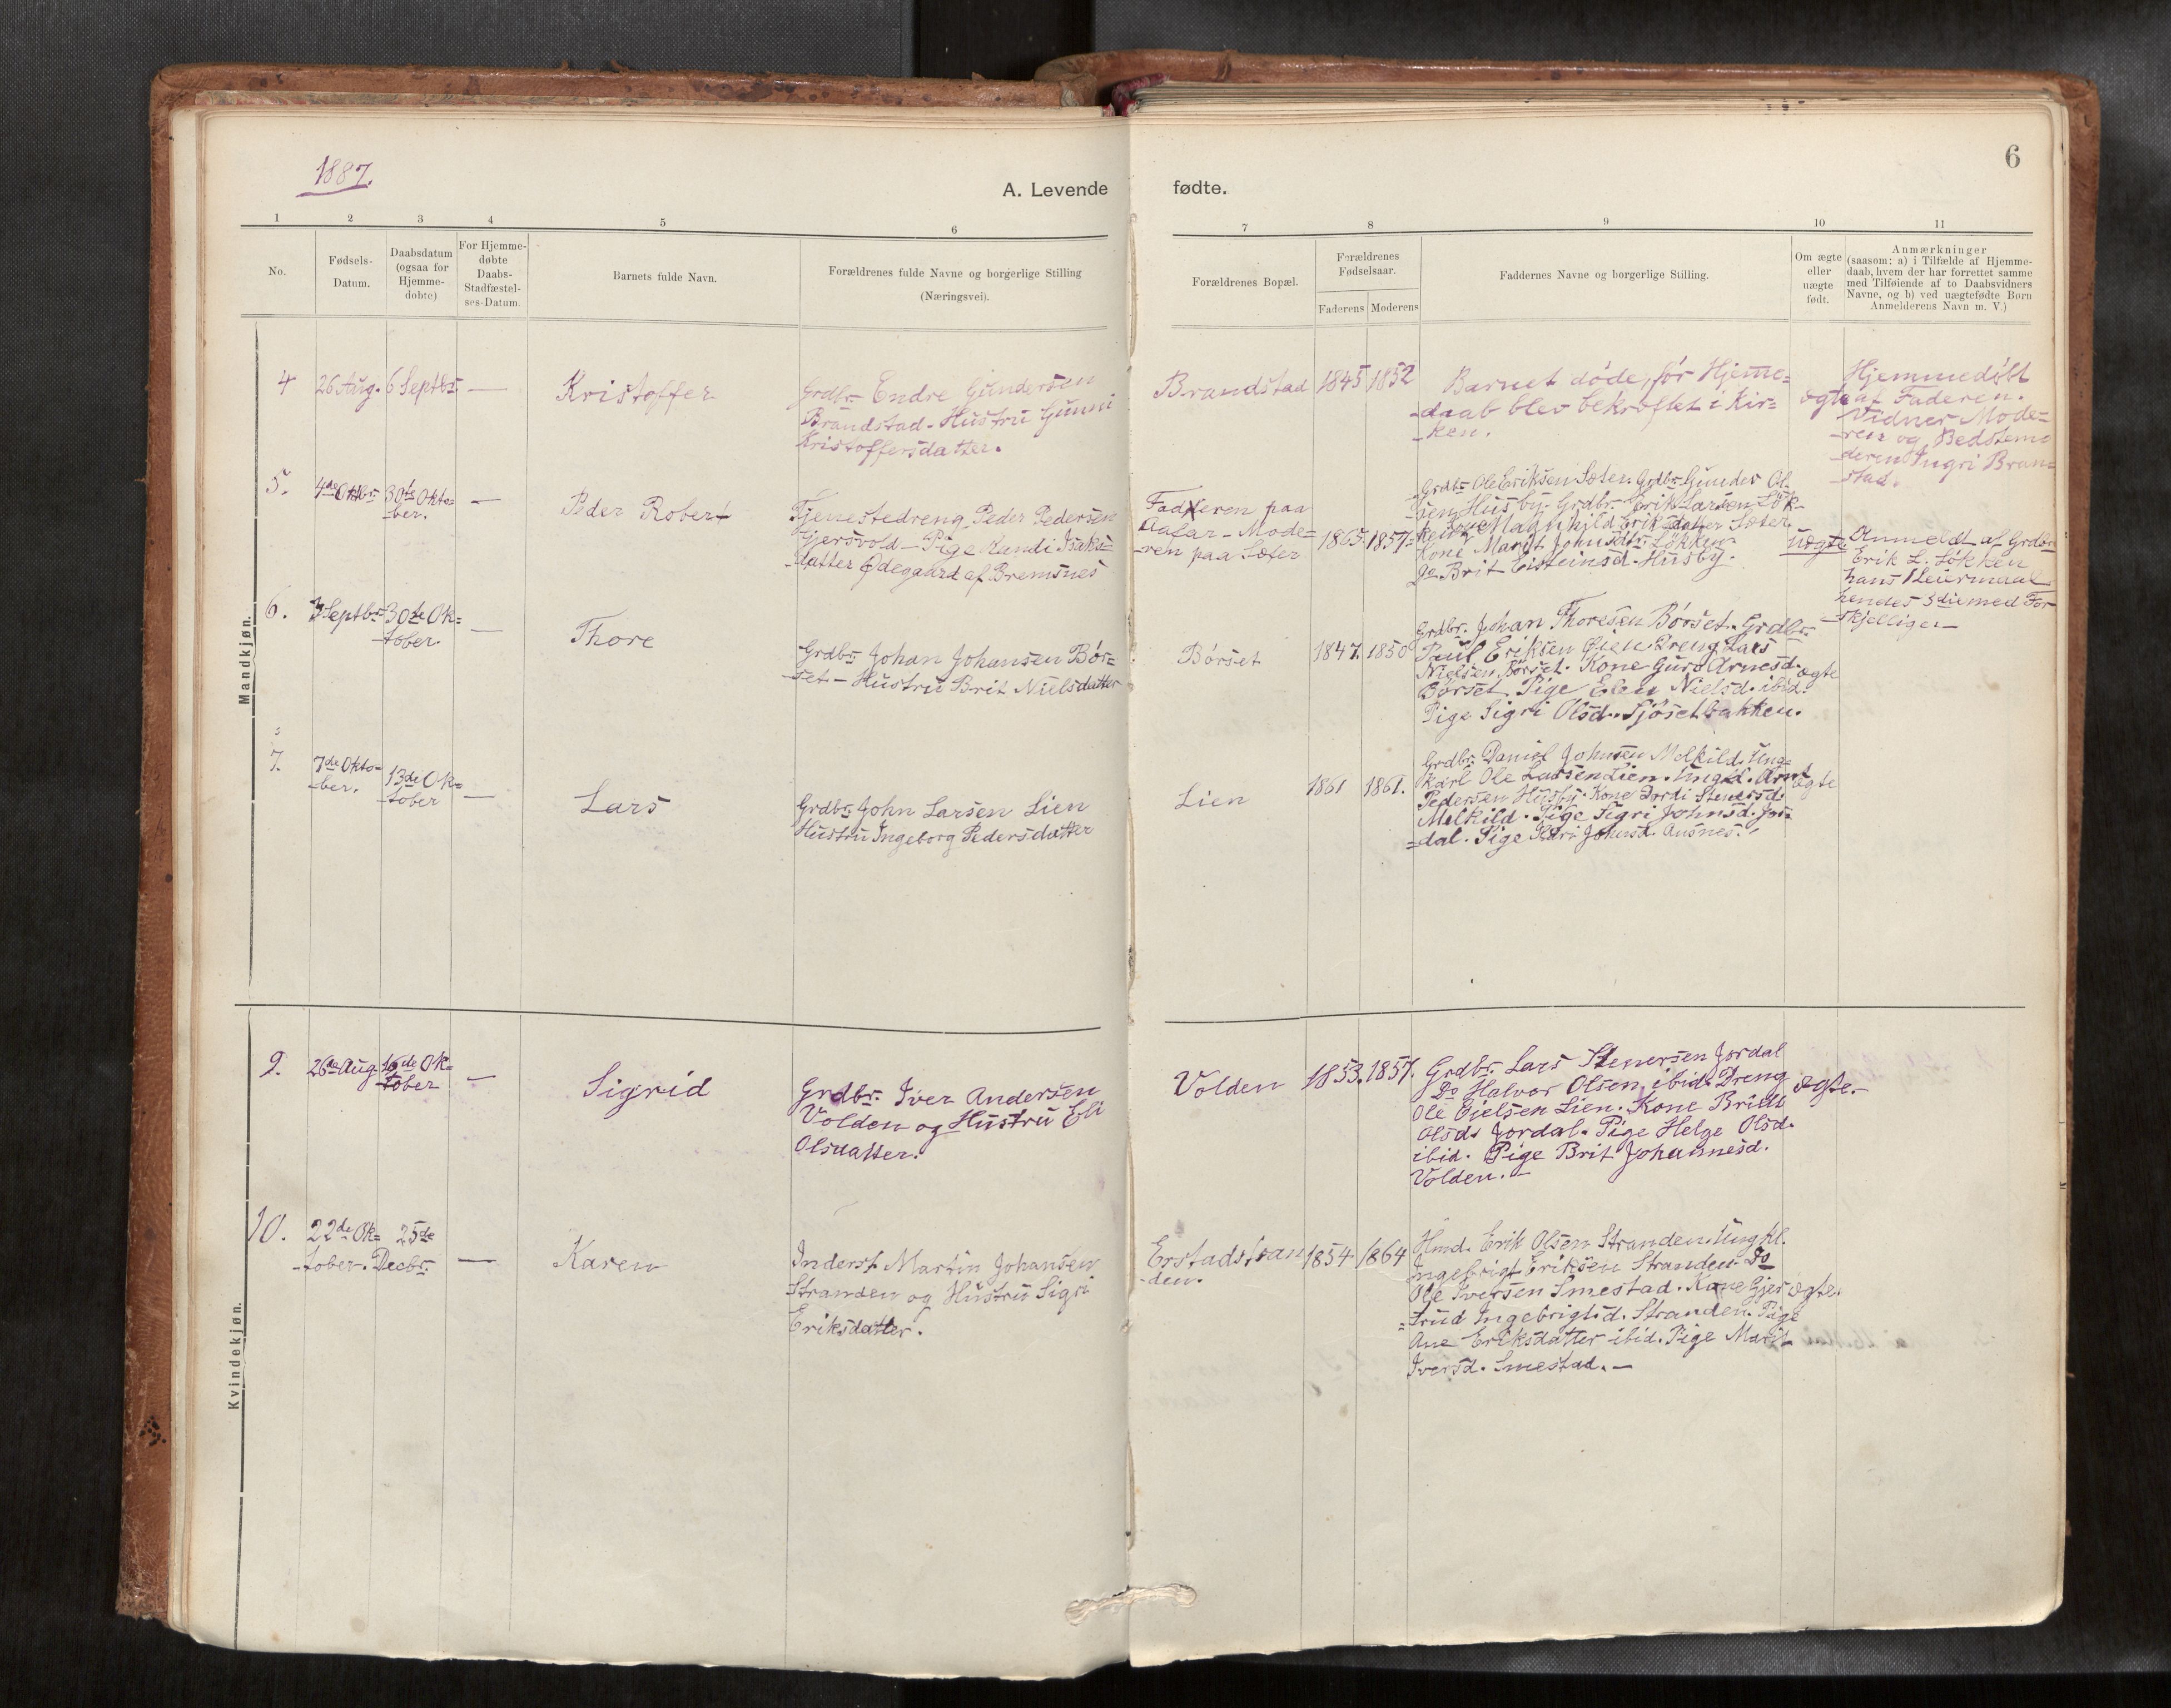 1887.
6
A. Levende fødte.
1 2 3 4 5 6 7 8 9 10 11
No.
Fødsels-
Datum.
Daabsdatum
(ogsaa for
Hjemme-
døbte)
For Hjemme-
døbte
Daabs-
Stadfæstel-
ses-Datum.
Barnets fulde Navn.
Forældrenes fulde Navne og borgerlige Stilling
(Næringsvei).
Forældrenes Bopæl.
Forældrenes
Fødselsaar.
Faderens Moderens
Faddernes Navne og borgerlige Stilling.
Om ægte
eller
uægte
født.
Anmærkninger
(saasom: a) i Tilfælde af Hjemme-
daab, hvem der har forrettet samme
med Tilføiende af to Daabsvidners
Navne, og b) ved uægtefødte Børn
Anmelderens Navn m. V.)
Mandkjøn.
4
26 Aug.
6 Septbr.
—
Kristoffer
Grdbr. Endre Gundersen
Brandstad - Hustru Gunni
Kristoffersdatter.
Brandstad
1845
1852
Barnet døde, før Hjemme=
-daab blev bekræftet i Kir=
-ken.
ægte
Hjemmedøbt
af Faderen.
Vidner Mode=
-ren og Bedstemo
deren Ingri Bran=
stad.
5.
4de Oktbr.
30te Okto=
ber.
—
Peder Robert
Tjenestedreng Peder Pedersen
Gjersvold — Pige Randi Isaks=
datter Ødegaard af Bremsnes
Faderen paa
Aafar - Mode=
-ren paa Sæter
1865.
1857.
Grdbr. Ole Eriksen Sæter. Grdbr. Gunder Ol-
sen Husby. Grdbr. Erik Larsen Løk-
ken. Magnhild Eriksdatter Sæter.
Kone Marit Johnsdtr. Løkken.
Do Brit Eisteinsd. Husby.
Uægte
Anmeldt af Grdbr.
Erik L. Løkken
hans 1 Leiermaal
hendes 3die med For
skjellige.—
6.
3 Septbr.
30te Ok=
tober.
—
Thore
Grdbr. Johan Johansen Bør=
set — Hustru Brit Nielsdatter
Børset
1847.
1850
Grdbr. Johan Thoresen Børset. Grdbr.
Paul Eriksen Øien. Dreng Lars
Nielsen Børset. Kone Guro Arnesd.
Børset. Pige Elen Nielsd. ibid.
Pige Sigri Olsd. Sjøsetbakken.
ægte
7.
7de Okto=
ber.
13de Ok=
tober
—
Lars
Grdbr. John Larsen Lien
Hustru Ingeborg Pedersdatter
Lien
1861
1861.
Grdbr. Daniel Johnsen Melkild. Ung=
karl Ole Larsen Lien. Ungk. Arnt
Pedersen Husby. Kone Dordi Stenersd.
Melkild. Pige Sigri Johnsd. Jor=
=dal. Pige Kari Johnsd. Ausnes.
ægte
Kvindekjøn.
9.
26de Aug.
16de Ok=
tober
—
Sigrid
Grdbr. Iver Andersen
Volden og Hustru Eli
Olsdatter.
Volden
1853.
1857.
Grdbr. Lars Stenersen Jordal
Do Halvor Olsen ibid. Dreng
Ole Lien. Kone Britt
Olsd. Jordal. Pige Helge Olsd.
ibid. Pige Brit Johannesd.
Volden. —
ægte.
10.
22de Ok=
tober.
25de
Decbr.
—
Karen
Inderst Martin Johansen
Stranden og Hustru Sigri
Eriksdatter.
Erstadstran
den.
1854
1864
Hmd. Erik Olsen Stranden. Ungkl.
Ingebrigt Eriksen Stranden. Do
Ole Iversen Smestad. Kone Gjer
=trud Ingebrigtsd. Stranden. Pige
Ane Eriksdatter ibid. Pige Marit
Iversd. Smestad. —
ægte.